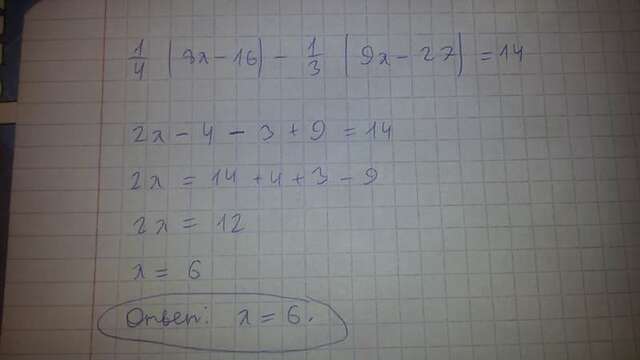 1/4 (8x - 16) - 1/3 (9x - 27) = 14
2x - 4 - 3 + 9 = 14
2x = 14 + 4 + 3 - 9
2x = 12
x = 6
Ответ: x = 6.